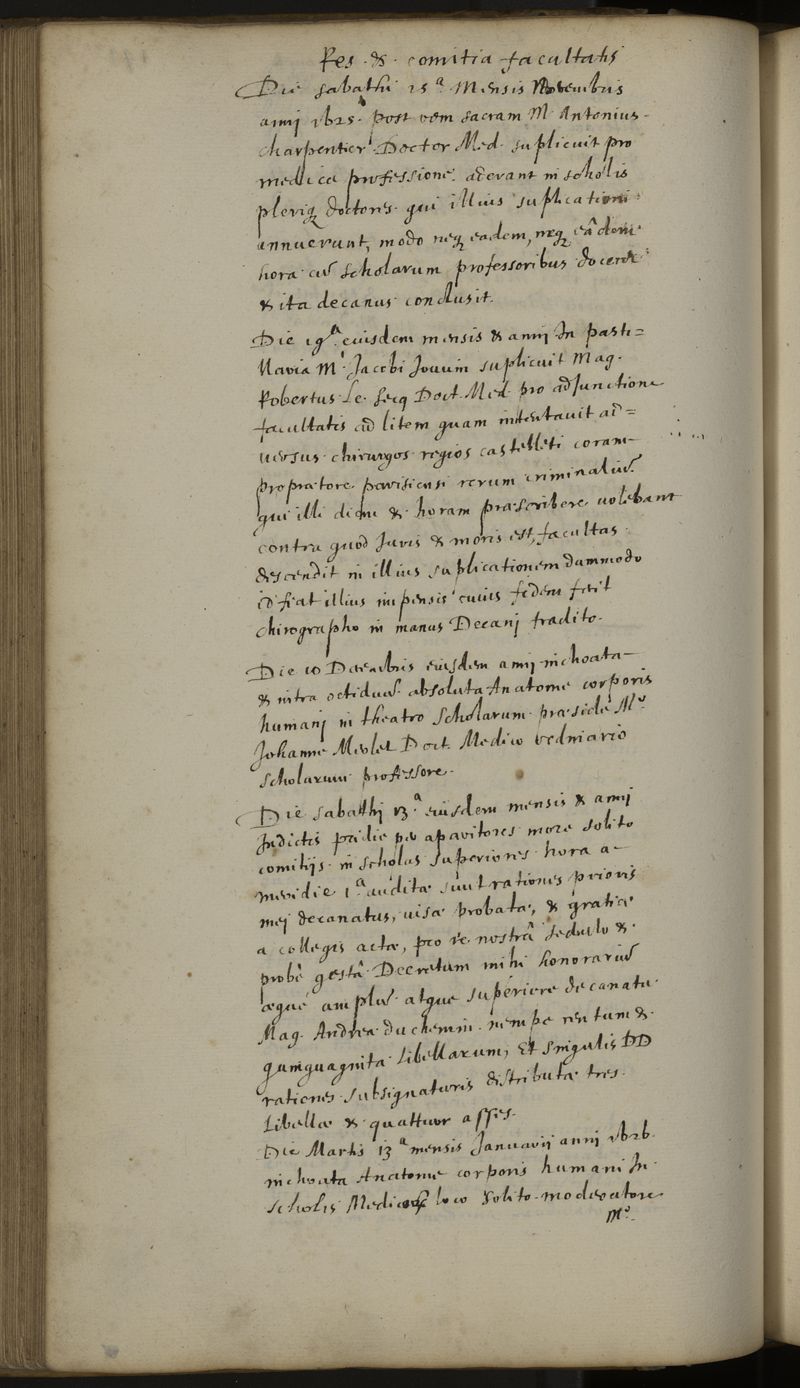 Res & comitia facultatis
Die sabathi 15ª Mensis Novembris
annj 1625 post rem sacram Mr Antonius
charpentier Doctor Med. suplicuit pro
medica professione. aderant in scholis
pleriq doctores qui illius suplicationi
annuerunt, modo neq eadem, neq eâdem
hora cū scholarum professoribus doceret
& ita decanus conclusit.
Die 19ª eiusdem mensis & annj In pasti=
llaria Mri Jacobi Jouuin suplicuit Mag.
Robertus Le Secq Doct. Med. pro adjunctione
facultatis ad litem quam intentauit ad=
uersus chirurgos regios castelleti coram
propraetore parisiensi rerum criminaliū
qui illi diem & horam praescribere uolebant
contra quod Juris & moris est, facultas
descendit in illius suplicationem dummodo
id fiat illius impensis cuius fidem fecit
chirographo in manus Decanj tradito.
Die 10 Decembris eiusdem annj inchoata
& intra octiduū absoluta Anatome corporis
humanj in theatro Scholarum praeside Mro
Johanne Merlet Doct. Medico ordinario
scholarum professore.
Die sabathj 13ª eiusdem mensis & annj
Indictis pridie per apparitores more solito
comitijs in scholas superiores hora a
meridie 1ª auditae sunt rationes prioris
mej decanatus, uisae probatae, & gratiae
a collegis actae, pro re nostrâ sedulo &
probè gestâ Decretum mihi honorariū
aequè amplū atque superiore decanatu
Mag. Andreae du chemin nempe centum &
quinquaginta Libellarum, Et singulis DD
rationes subsignaturis distributae tres
Libellae & quattuor asses.
Die Martis 13ª mensis Januarij annj 1626
inchoata Anatome corporis humani In
scholis Medicorū loco solito moderatore
Mro